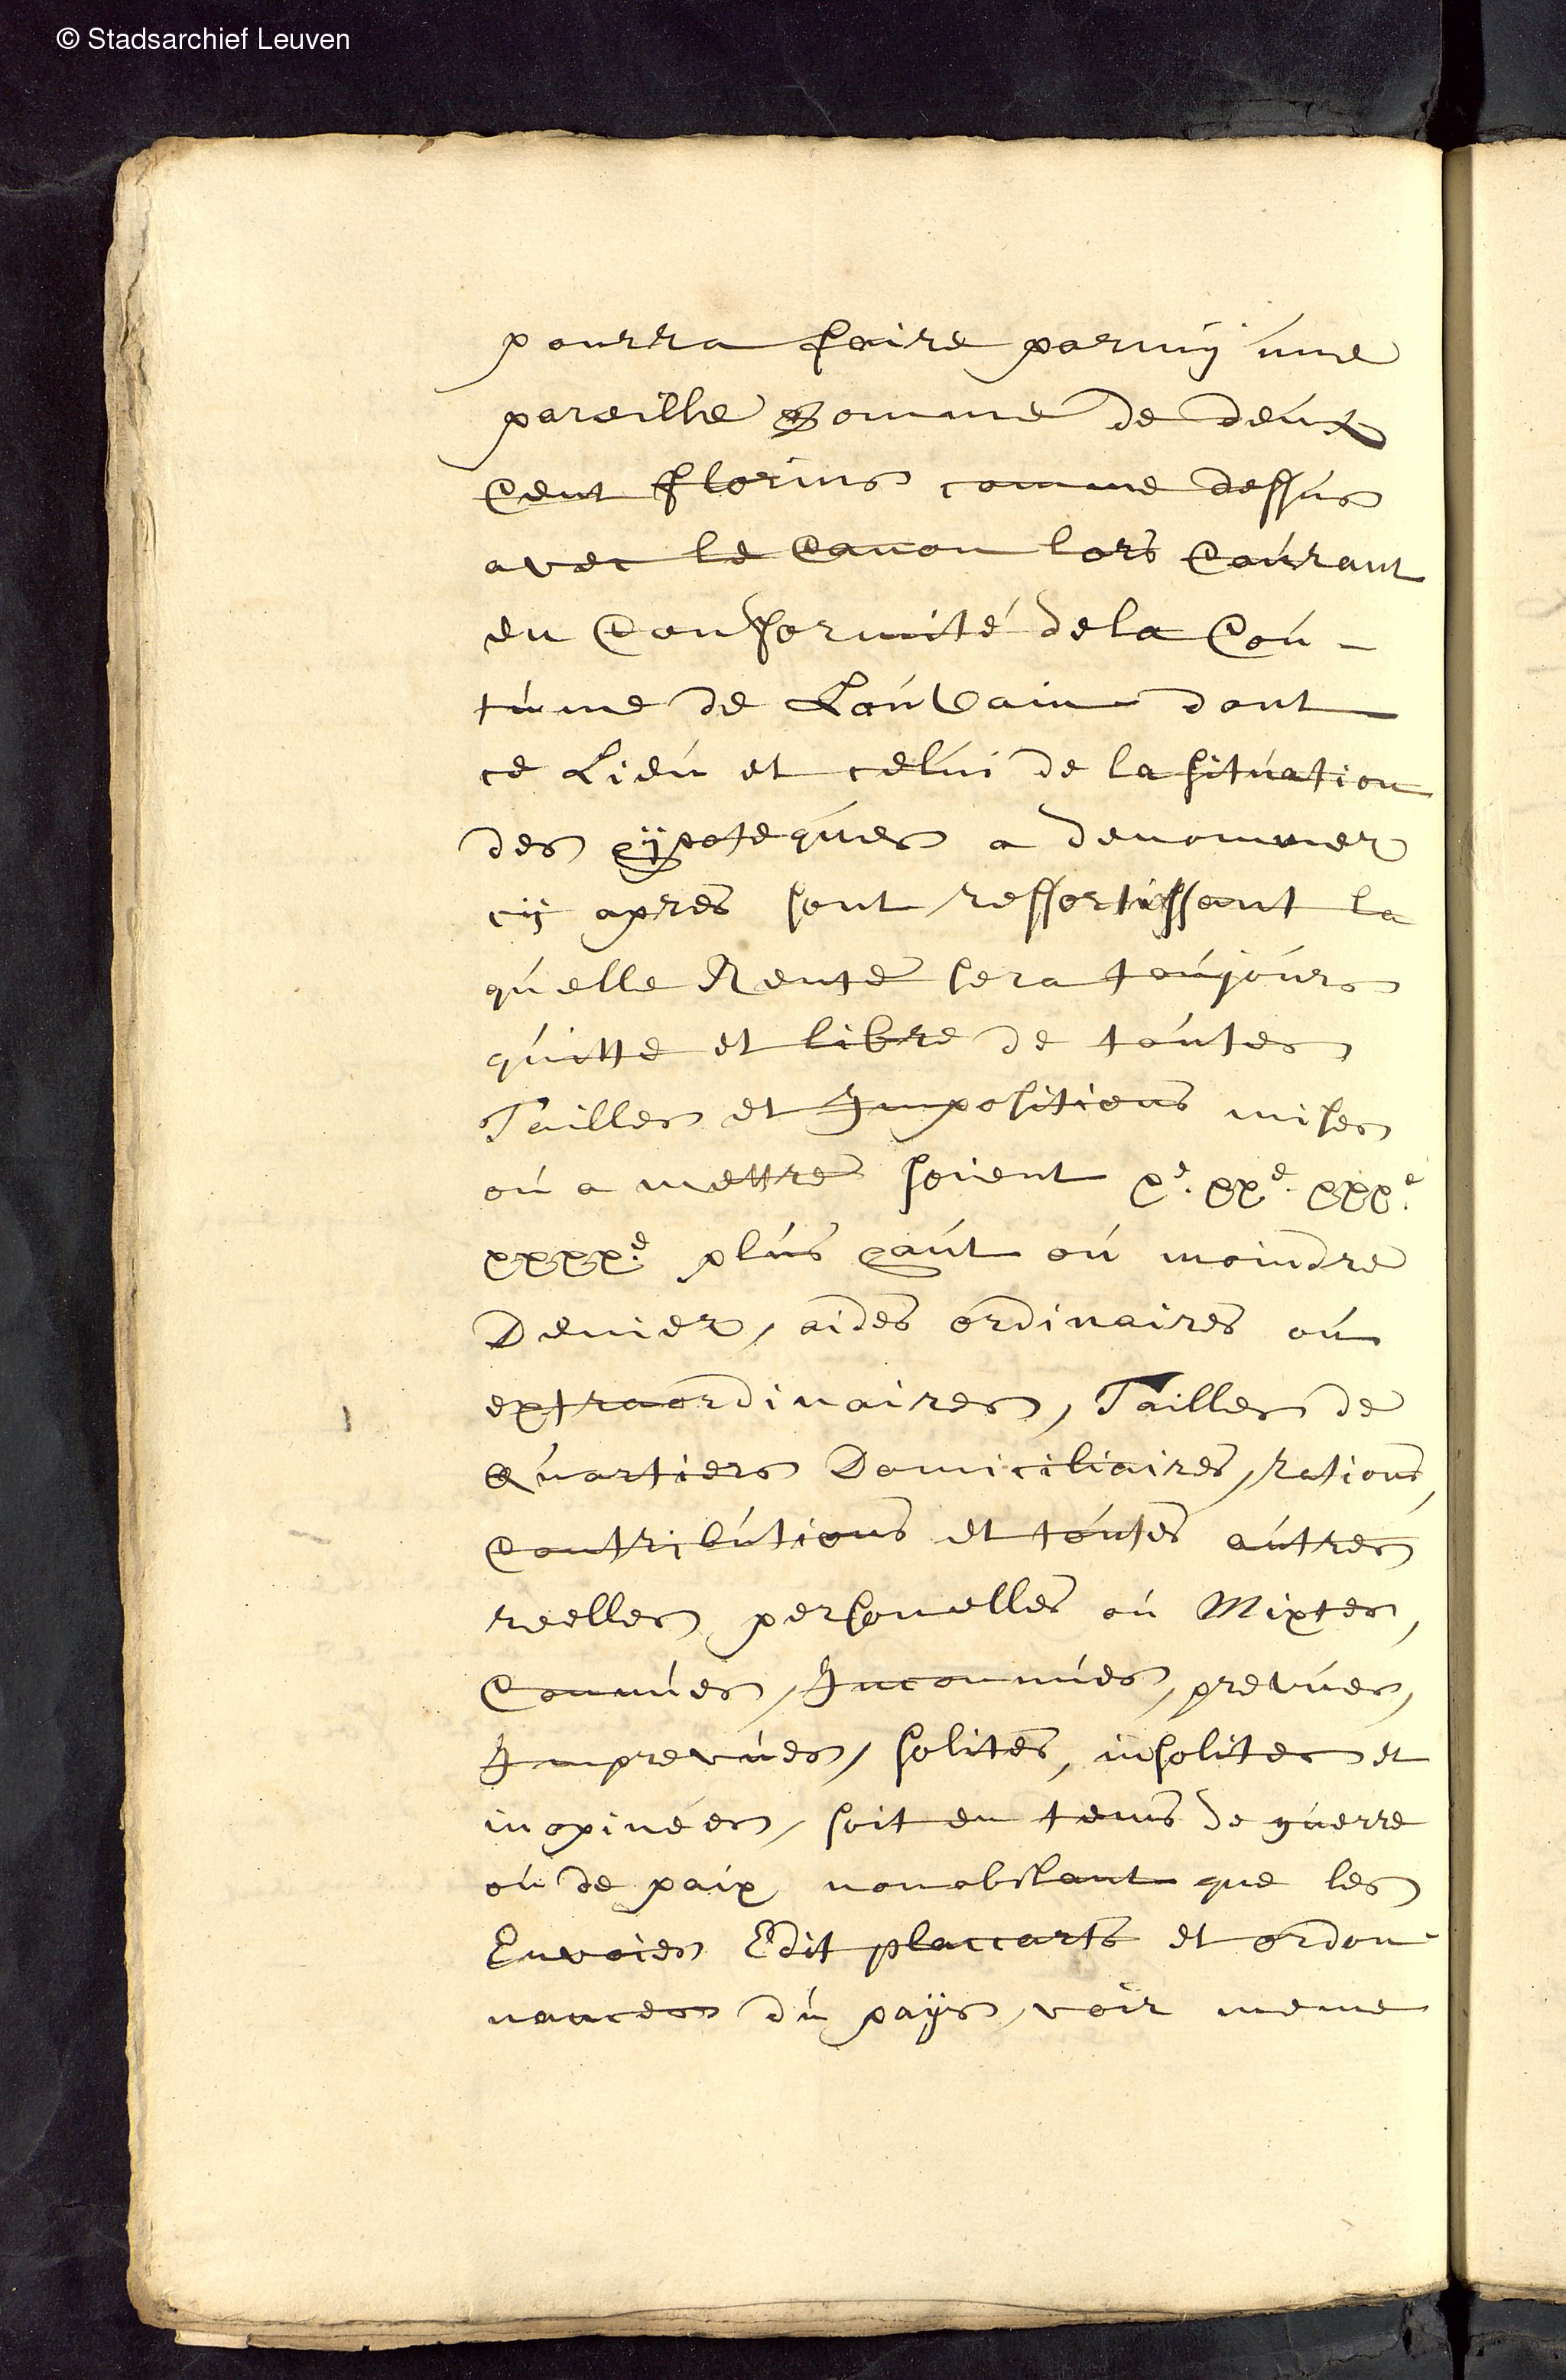 © Stadsarchief Leuven
pourra faire parmÿ une
pareille Somme de deux
Cent florins comme dessus
avec le Canon lors Courant
en Conformité dela Cou-
tume de LouVain dont
ce Lieu et celui de la situation
des hÿpoteques a denommer
cÿ apres sont ressortissant la
quelle Rente sera toujours
quitte et libre de toutes
Tailles et Impositions mises
ou a mettre soient xe. xxe. xxxe.
xxxxe. plus haut ou moindre
Denier, aides ordinaires ou
extraordinaires, Tailles de
Quartiers Domiciliaires, rations,
Contributions et toutes autres
reelles personnelles ou Mixtes,
Connues, Inconnues, prevues,
Imprevues, solites, insolites et
inopinées, soit en tems de guerre
ou de paix nonobstant que les
Envoies Edit placcarts et ordon-
nances du paÿs, voir meme